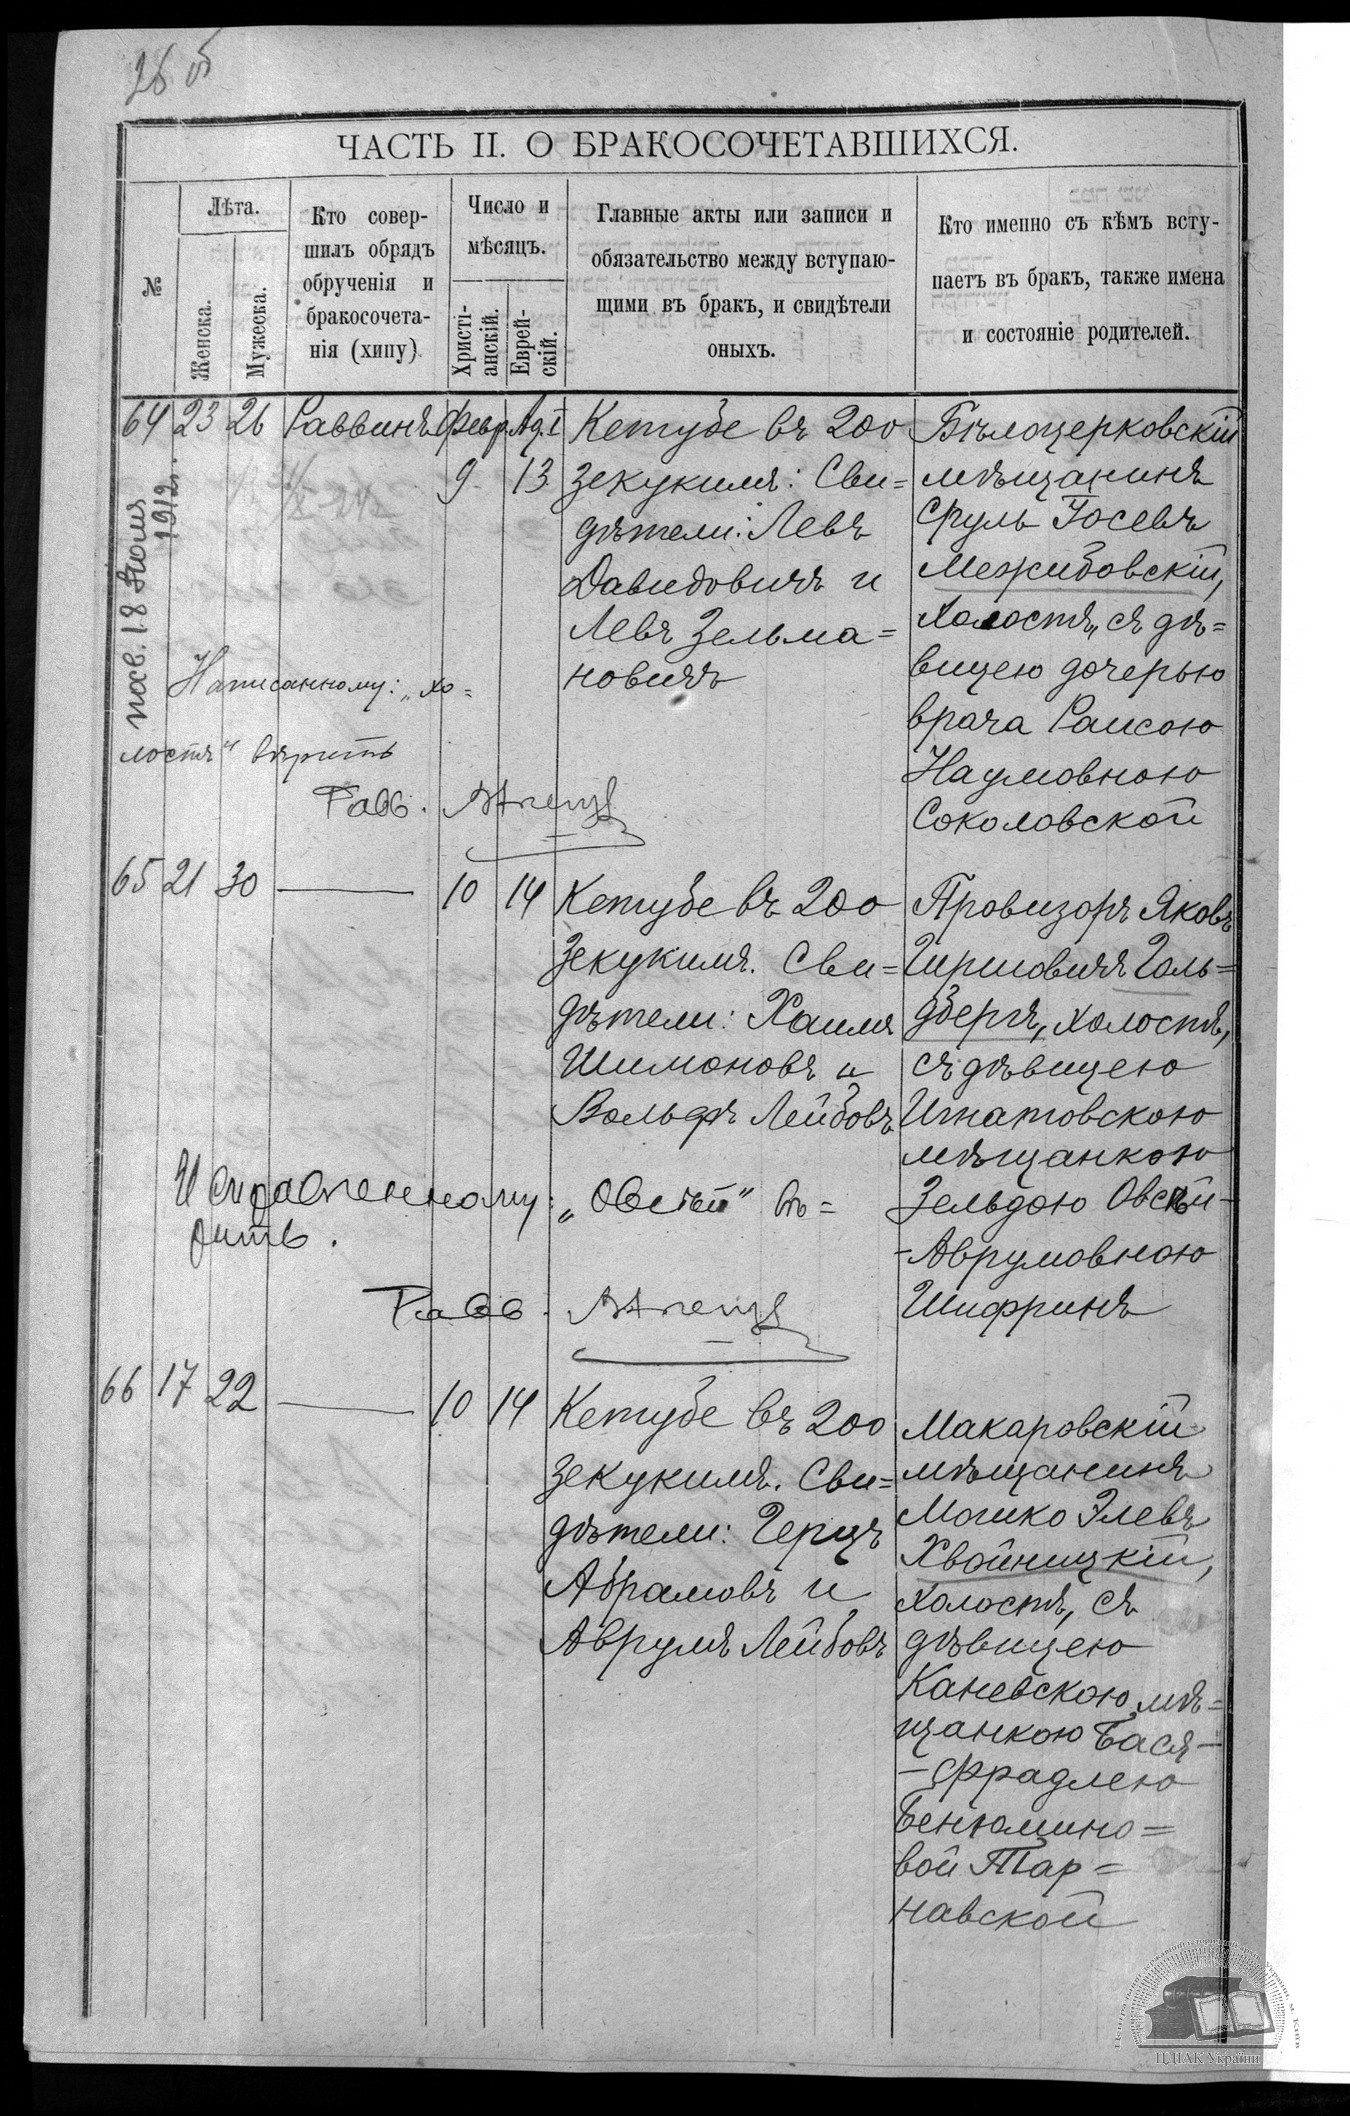 26 об
ЧАСТЬ II. О БРАКОСОЧЕТАВШИХСЯ.
№
Лѣта.
Женска.
Мужеска.
Кто совер-
шилъ обрядъ
обрученія и
бракосочета-
нія (хипу)
Число и
мѣсяцъ.
Христі-
анскій.
Еврей-
скій.
Главные акты или записи и
обязательство между вступаю-
щими въ бракъ, и свидѣтели
оныхъ.
Кто именно съ кѣмъ всту-
паетъ въ бракъ, также имена
и состояніе родителей.
64 23 26 Раввинъ Февр. Ад. I
9 13
Кетубе въ 200
зекукимъ: Сви=
дѣтели: Левъ
Давидовичъ и
Левъ Зельма=
новичъ
Бѣлоцерковскій
мѣщанинъ
Сруль Іосевъ
Межибовскій,
холостъ, съ дѣ=
вицею дочерью
врача Раисою
Наумовною
Соколовской
18 Іюля
1912 г.
Написанному: „хо=
лостъ" вѣрить
Равв.
65 21 30 — 10 14
Кетубе въ 200
Зекукимъ. Сви=
дѣтели: Хаимъ
Шимоновъ и
Вольфъ Лейбовъ
Провизоръ Яковъ
Гиршовичъ Голь=
дбергъ, холостъ,
съ дѣвицею
Игнатовскою
мѣщанкою
Зельдою Овсѣй-
-Аврумовною
Шифринъ
Исправленному: „Овсѣй" вѣ=
рить.
Равв.
66 17 22 — 10 14
Кетубе въ 200
зекукимъ. Сви=
дѣтели: Герцъ
Абрамовъ и
Аврумъ Лейбовъ
Макаровскій
мѣщанинъ
Мошко Элевъ
Хвойницкій,
холостъ, съ
дѣвицею
Каневскою мѣ=
щанкою Бася-
-Фрадлею
Бенюмино=
вой Тар=
навской
ЦДІАК України